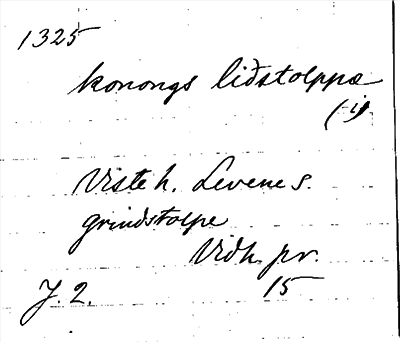 1325
konongs liðstolppa
(-i)
Viste h. Levene s.
grindstolpe
Vidh. pr.
J. 2. 15